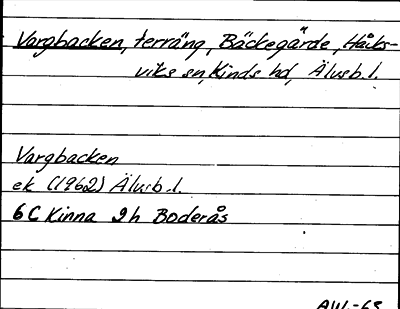 Vargbacken, terräng, Bäckegärde, Håcks-
viks sn, Kinds hd, Älvsb. l.
Vargbacken
ek (1962) Älvsb. l.
6 C Kinna 9h Boderås